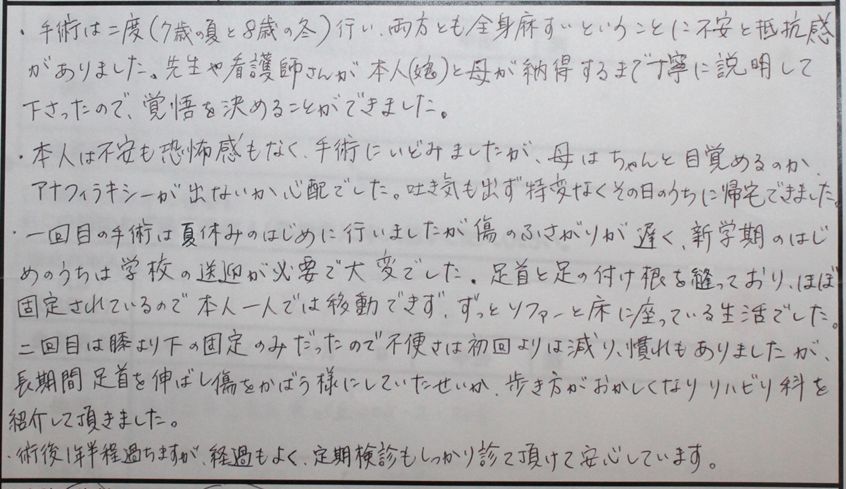 ・手術は二度(7歳の夏と8歳の冬)行い、両方とも全身麻すいということに不安と抵抗感
がありました。先生や看護師さんが本人(娘)と母が納得するまで丁寧に説明して
下さったので、覚悟を決めることができました。
・本人は不安も恐怖感もなく、手術にいどみましたが、母はちゃんと目覚めるのか、
アナフィラキシーが出ないか心配でした。吐き気も出ず特変なくその日のうちに帰宅できました。
・一回目の手術は夏休みのはじめに行いましたが傷のふさがりが遅く、新学期のはじ
めのうちは学校の送迎が必要で大変でした。足首と足の付け根を縫っており、ほぼ
固定されているので本人一人では移動できず、ずっとソファーと床に座っている生活でした。
二回目は膝より下の固定のみだったので不便さは初回よりは減り、慣れもありましたが、
長期間足首を伸ばし傷をかばう様にしていたせいか、歩き方がおかしくなりリハビリ科を
紹介して頂きました。
・術後1年半程過ちますが、経過もよく、定期検診もしっかり診て頂けて安心しています。